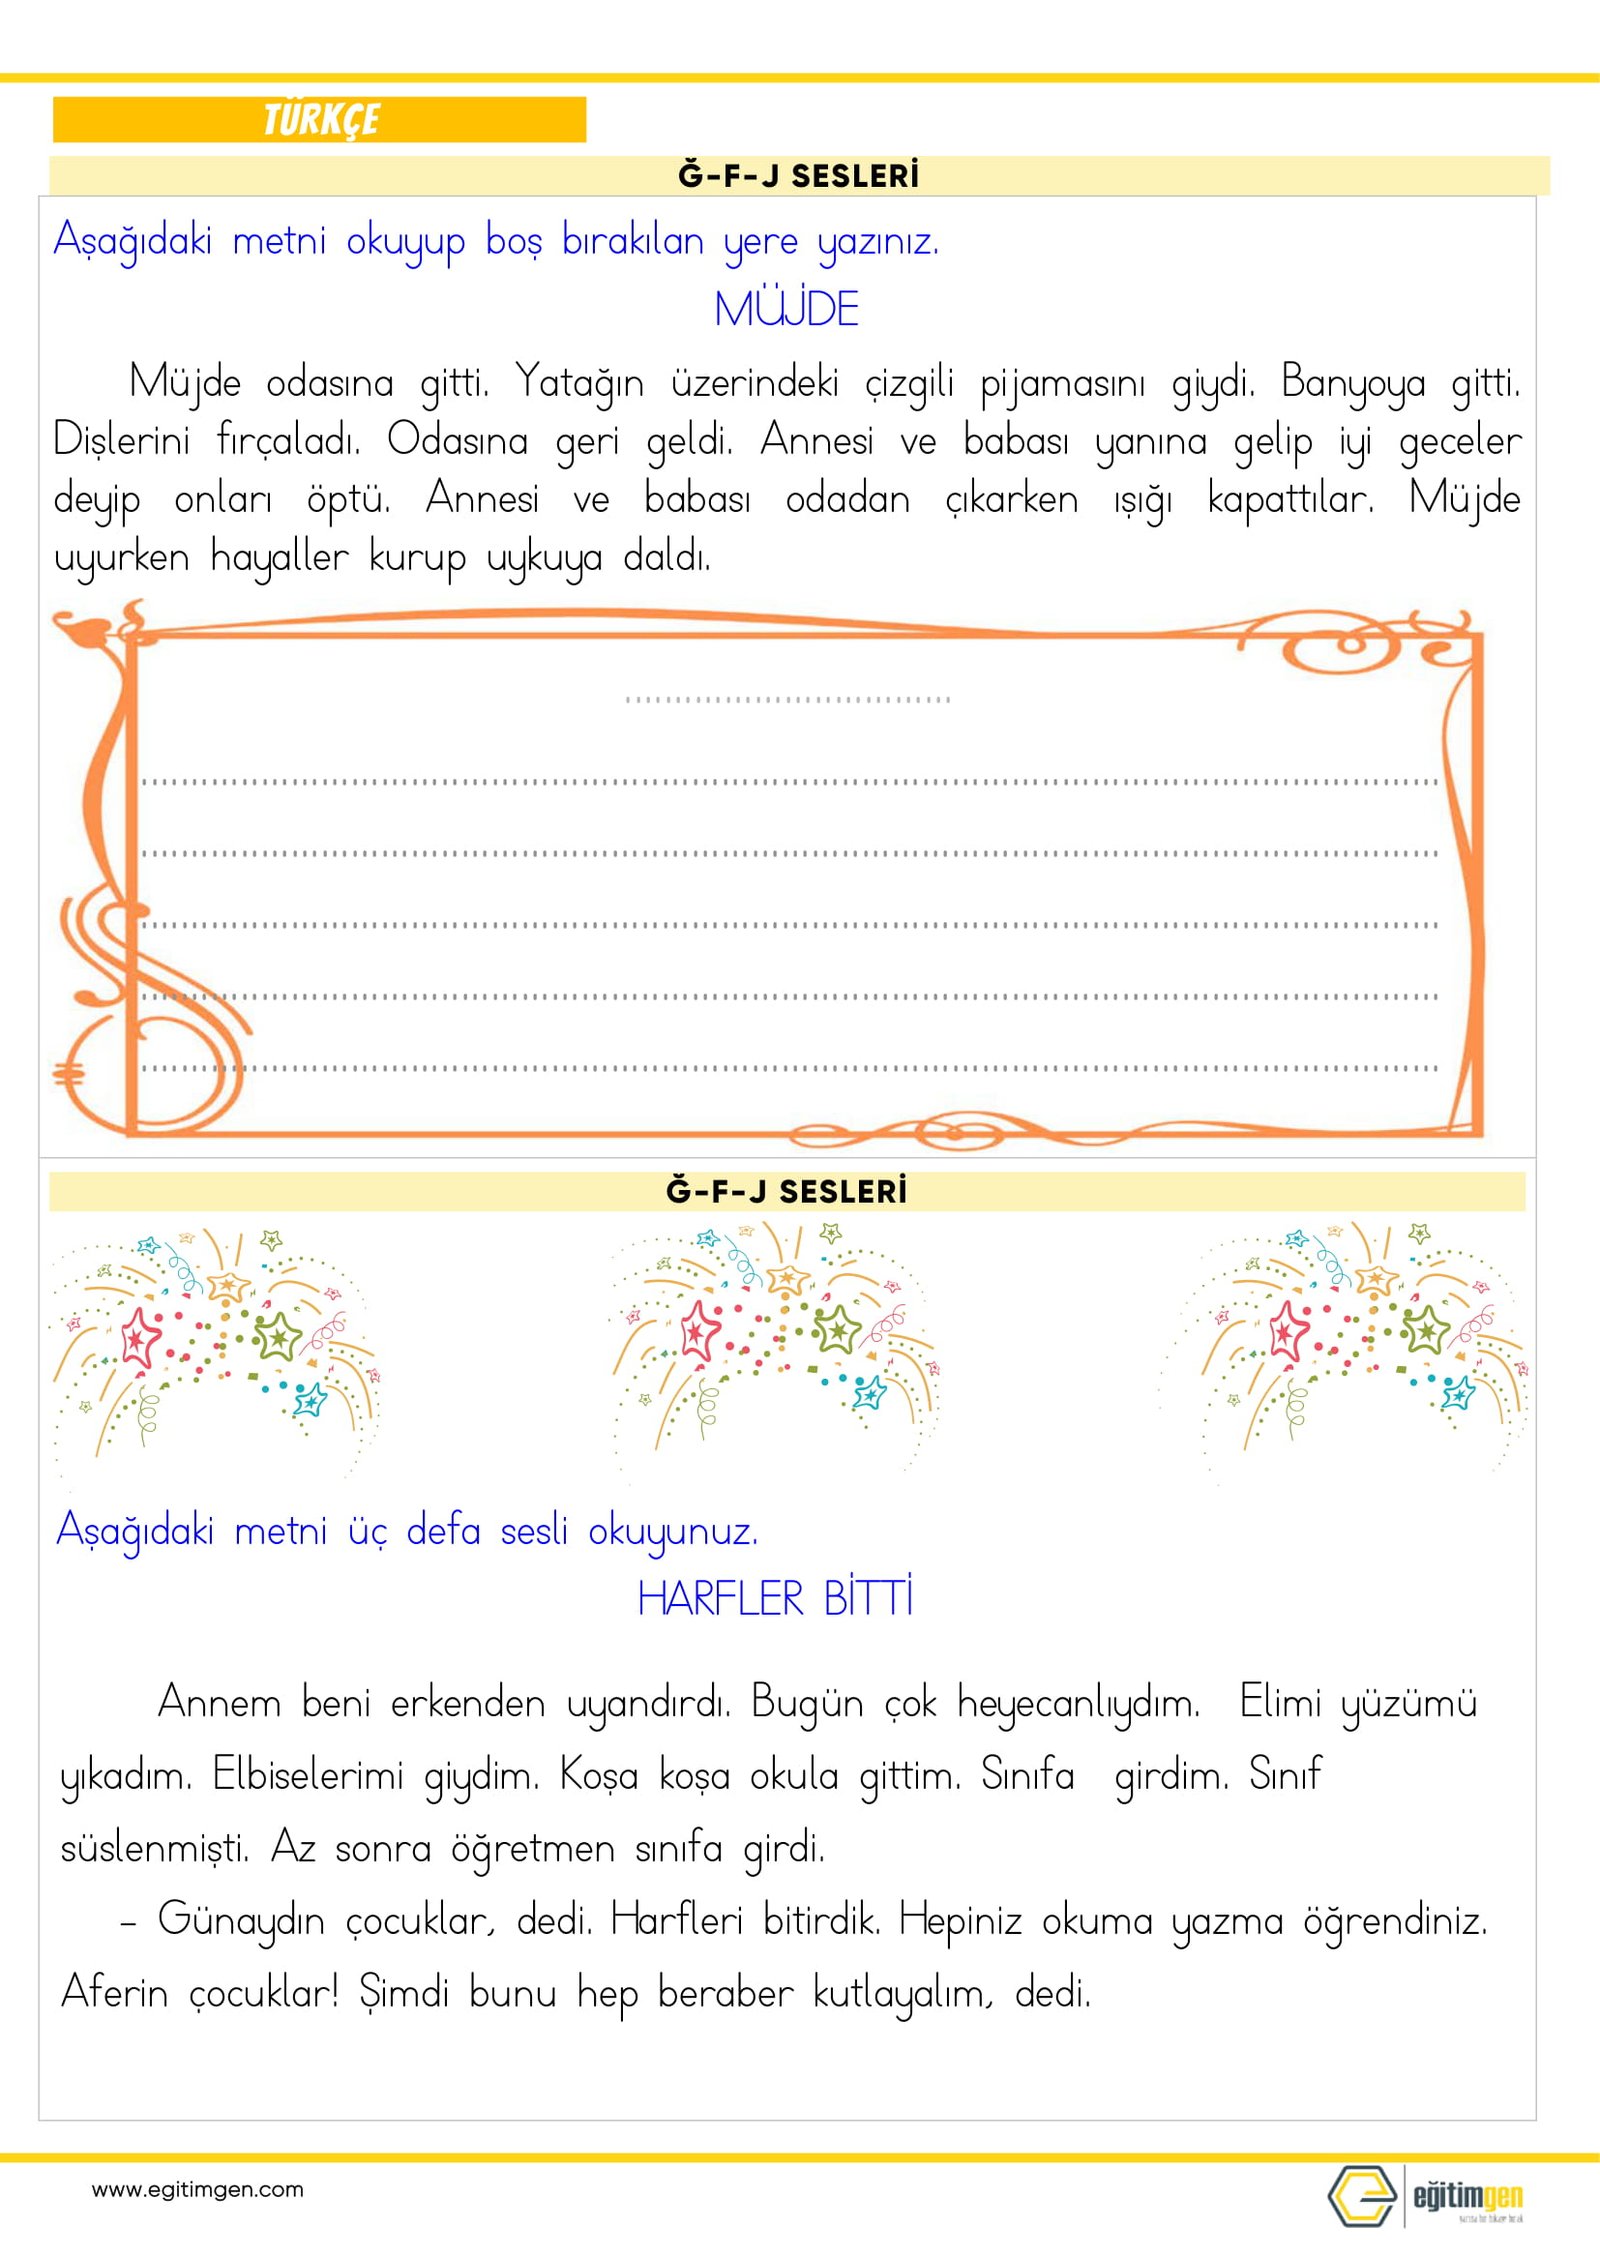 TÜRKÇE
Ğ-F-J SESLERİ
Aşağıdaki metni okuyup boş bırakılan yere yazınız.
MÜJDE
Müjde odasına gitti. Yatağın üzerindeki çizgili pijamasını giydi. Banyoya gitti.
Dişlerini fırçaladı. Odasına geri geldi. Annesi ve babası yanına gelip iyi geceler
deyip onları öptü. Annesi ve babası odadan çıkarken ışığı kapattılar. Müjde
uyurken hayaller kurup uykuya daldı.
Ğ-F-J SESLERİ
Aşağıdaki metni üç defa sesli okuyunuz.
HARFLER BİTTİ
Annem beni erkenden uyandırdı. Bugün çok heyecanlıydım. Elimi yüzümü
yıkadım. Elbiselerimi giydim. Koşa koşa okula gittim. Sınıfa girdim. Sınıf
süslenmişti. Az sonra öğretmen sınıfa girdi.
- Günaydın çocuklar, dedi. Harfleri bitirdik. Hepiniz okuma yazma öğrendiniz.
Aferin çocuklar! Şimdi bunu hep beraber kutlayalım, dedi.
www.egitimgen.com
eğitimgen